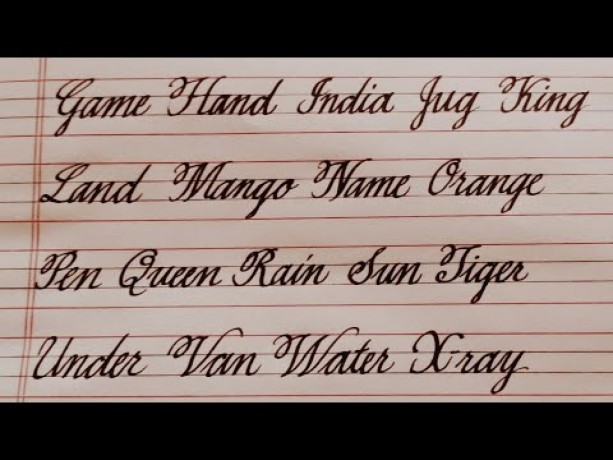 Game Hand India Jug King
Land Mango Name Orange
Pen Queen Rain Sun Tiger
Under Van Water X-ray